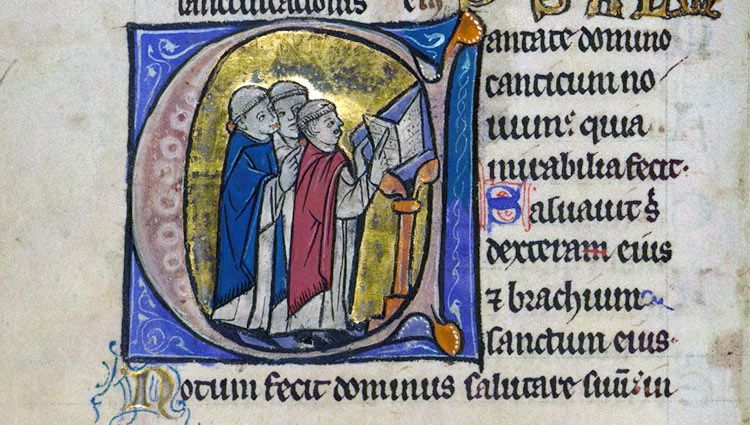 sanctificationis eius
Cantate domino
canticum no
uum: quia
mirabilia fecit.
Saluauit s
dexteram eius
⁊ brachium
sanctum eius.
Notum fecit dominus salutare suū: in